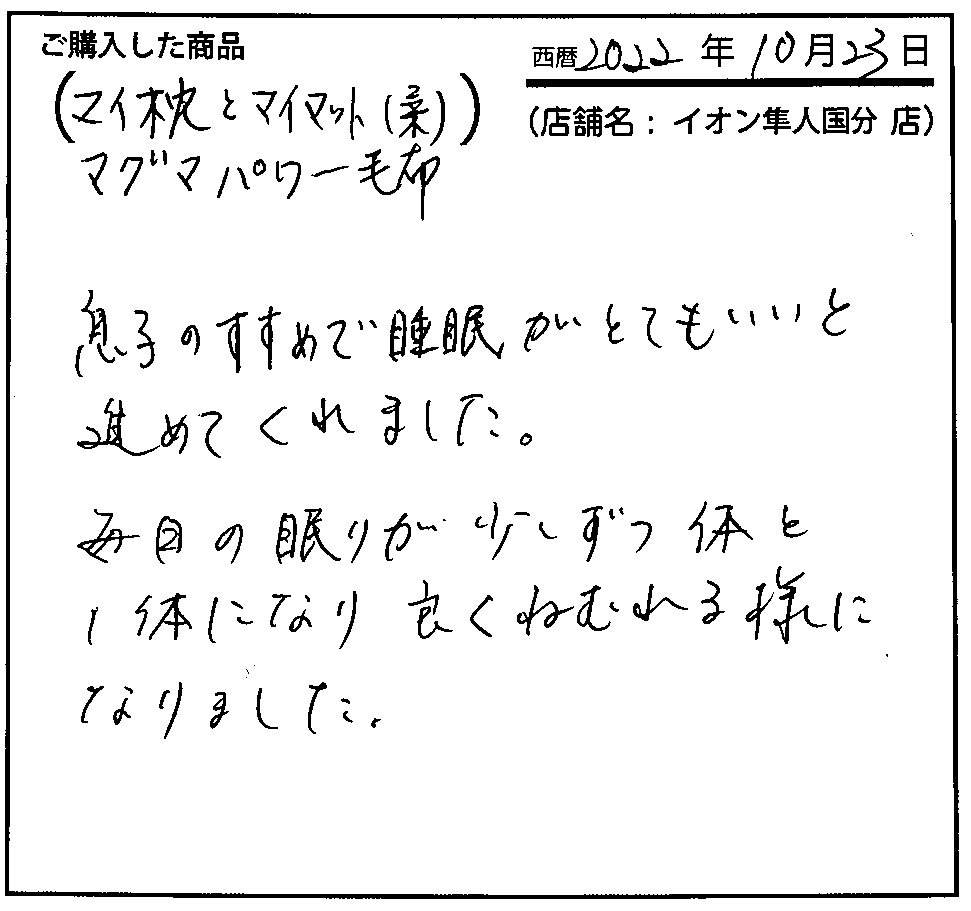 ご購入した商品
西暦2022年10月23日
(マイ枕とマイマット(柔))
(店舗名:イオン隼人国分 店)
マグマパワー毛布
息子のすすめで睡眠がとてもいいと
進めてくれました。
毎日の眠りが少しずつ体と
1体になり良くねむれる様に
なりました。